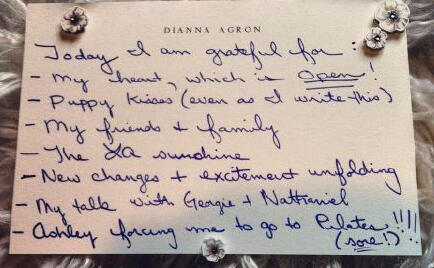 DIANNA AGRON
Today I am grateful for:
- My heart, which is open!
- Puppy Kisses (even as I write this)
- My friends + family
- The LA sunshine
- New changes + excitement unfolding
- My talk with Georgie + Nathaniel
- Ashley forcing me to go to Pilates!!!!
(sore!)